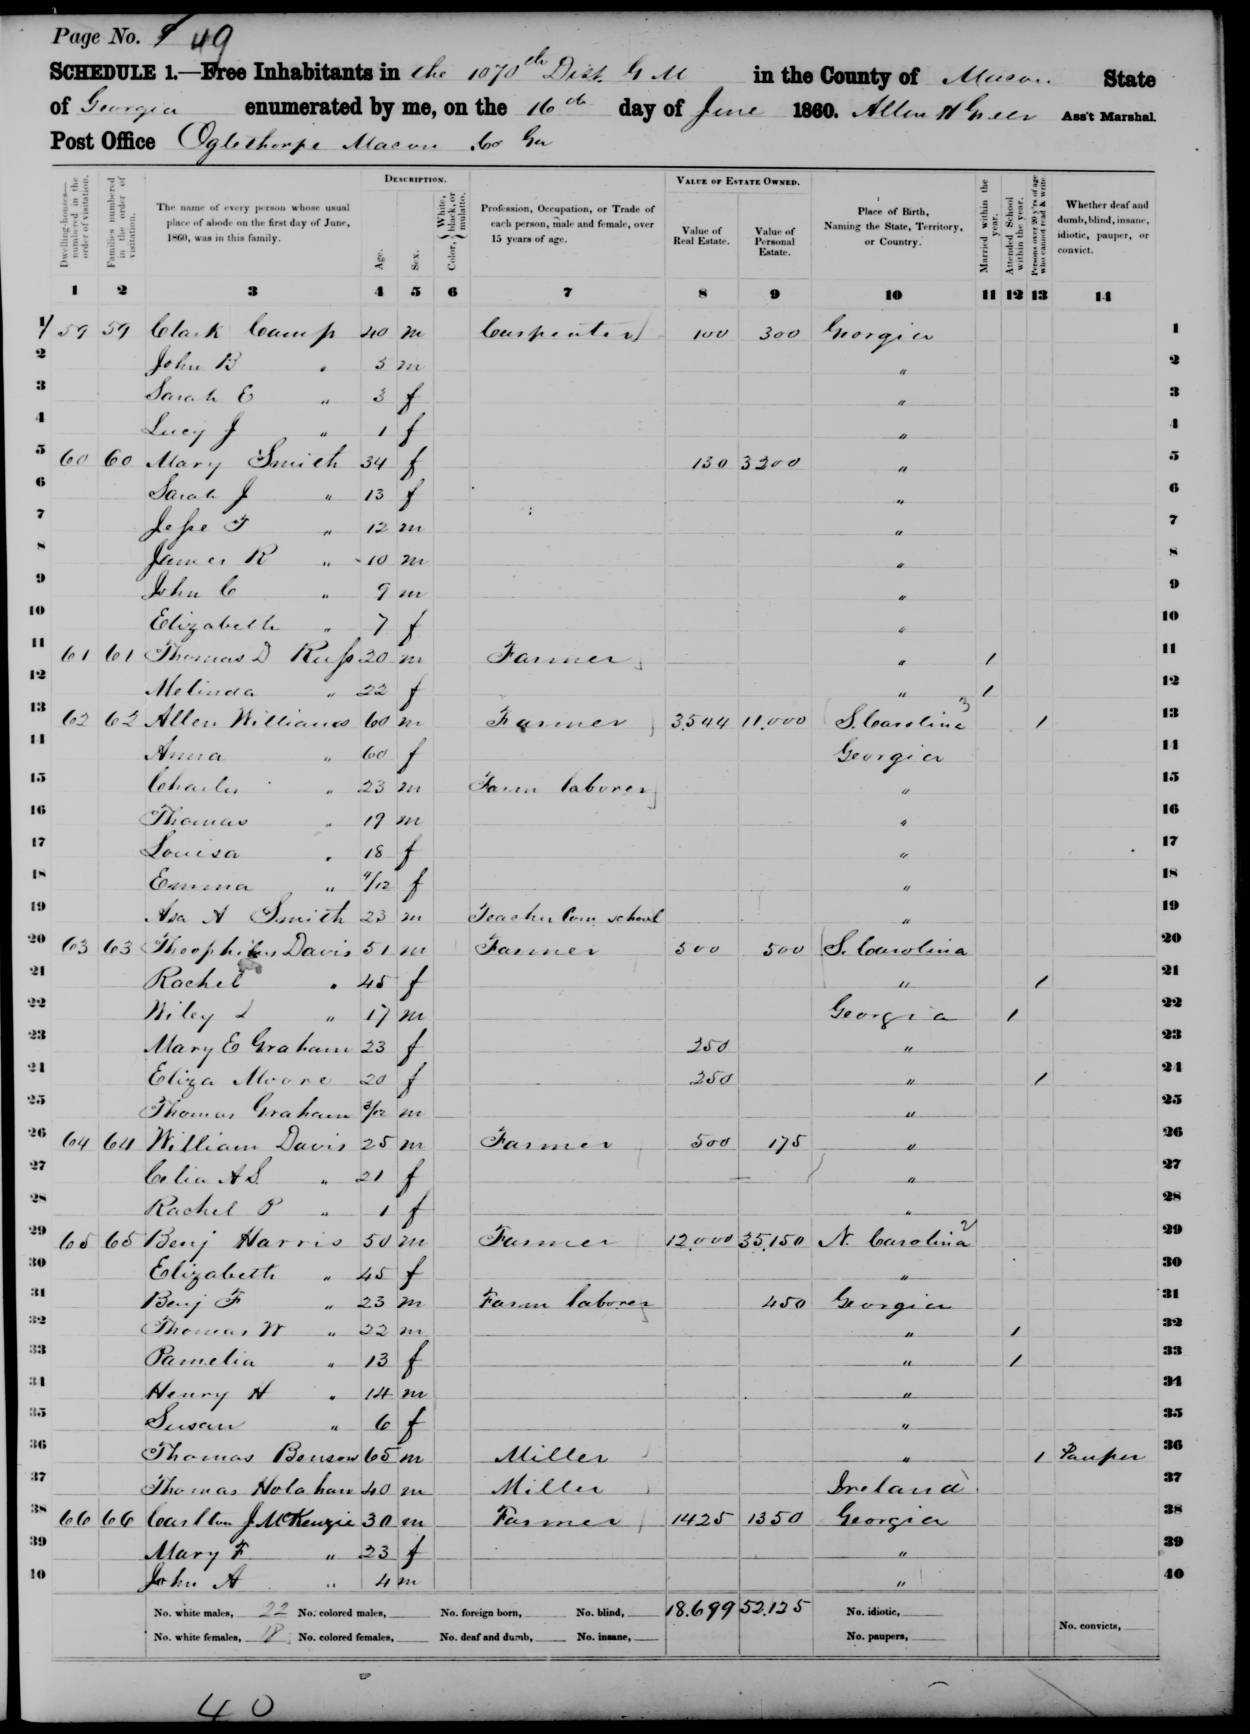 Page No. 9 49
SCHEDULE 1.—Free Inhabitants in the 1070th Dist G M in the County of Macon State
of Georgia enumerated by me, on the 16th day of June 1860. Allen H Greer Ass't Marshal.
Post Office Oglethorpe Macon Co Ga
DESCRIPTION. VALUE OF ESTATE OWNED.
Dwelling-houses—numbered in the order of visitation. Families numbered in the order of visitation. The name of every person whose usual place of abode on the first day of June, 1860, was in this family. Age. Sex. Color, { White, black, or mulatto. Profession, Occupation, or Trade of each person, male and female, over 15 years of age. Value of Real Estate. Value of Personal Estate. Place of Birth, Naming the State, Territory, or Country. Married within the year. Attended School within the year. Persons over 20 y'rs of age who cannot read & write. Whether deaf and dumb, blind, insane, idiotic, pauper, or convict.
1 2 3 4 5 6 7 8 9 10 11 12 13 14
1 59 59 Clark Camp 40 m Carpenter 100 300 Georgia 1
2 John B " 5 m " 2
3 Sarah E " 3 f " 3
4 Lucy J " 1 f " 4
5 60 60 Mary Smith 34 f 130 3200 " 5
6 Sarah J " 13 f " 6
7 Jesse F " 12 m " 7
8 James R " 10 m " 8
9 John C " 9 m " 9
10 Elizabeth " 7 f " 10
11 61 61 Thomas D Russ 20 m Farmer " 1 11
12 Melinda " 22 f " 1 12
13 62 62 Allen Williams 60 m Farmer 3544 11,000 S. Carolina 3 1 13
14 Anna " 60 f Georgia 14
15 Charles " 23 m Farm laborer " 15
16 Thomas " 19 m " 16
17 Louisa " 18 f " 17
18 Emma " 4/12 f " 18
19 Asa A Smith 23 m Teacher Com school " 19
20 63 63 Theophilus Davis 51 m Farmer 500 500 S. Carolina 20
21 Rachel " 45 f " 1 21
22 Wiley L " 17 m Georgia 1 22
23 Mary E Graham 23 f 250 " 23
24 Eliza Moore 20 f 250 " 1 24
25 Thomas Graham /12 m " 25
26 64 64 William Davis 25 m Farmer 500 175 " 26
27 Celia A S " 21 f " 27
28 Rachel P " 1 f " 28
29 65 65 Benj Harris 50 m Farmer 12,000 35,150 N. Carolina 2 29
30 Elizabeth " 45 f " 30
31 Benj F " 23 m Farm laborer 450 Georgia 31
32 Thomas W " 22 m " 1 32
33 Pamelia " 13 f " 1 33
34 Henry H " 14 m " 34
35 Susan " 6 f " 35
36 Thomas Benson 65 m Miller " 1 Pauper 36
37 Thomas Holahan 40 m Miller Ireland 37
38 66 66 Carlton J McKenzie 30 m Farmer 1425 1350 Georgia 38
39 Mary F " 23 f " 39
40 John A " 4 m " 40
No. white males, 22 No. colored males, No. foreign born, No. blind, 18.699 52.125 No. idiotic,
No. white females, 18 No. colored females, No. deaf and dumb, No. insane, No. paupers, No. convicts,
40